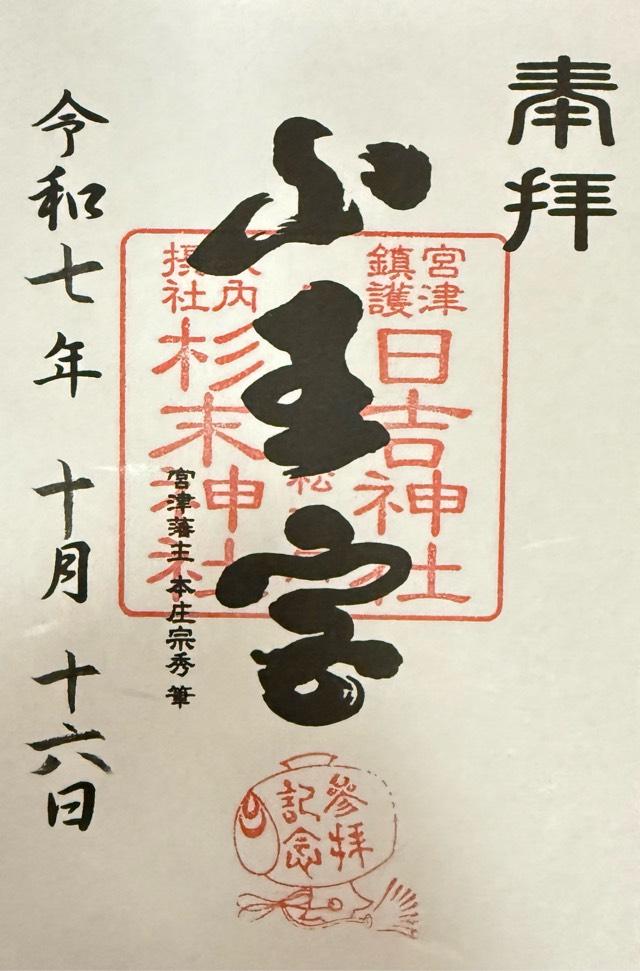 奉拝
宮津
鎮護
日吉神社
山王宮
松
境内
摂社
杉末神社
宮津藩主 本庄宗秀 筆
令和七年 十月 十六日
参拝
記念